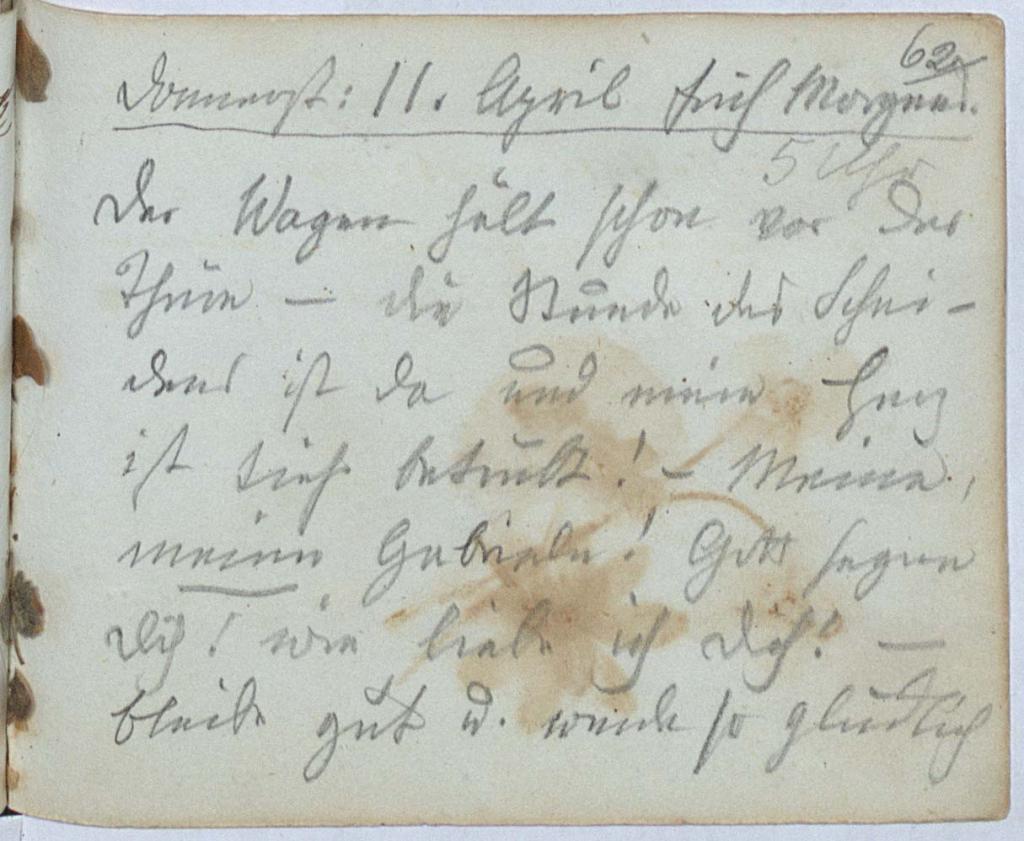 62
Donnerst: 11. April früh Morgens.
5 Uhr
Der Wagen hält schon vor der
Thüre – die Stunde des Schei-
dens ist da und mein Herz
ist tief betrübt! – Meine,
meine Gabriele! Gott segne
Dich! wie liebe ich Dich! –
bleibe gut u. werde so glücklich